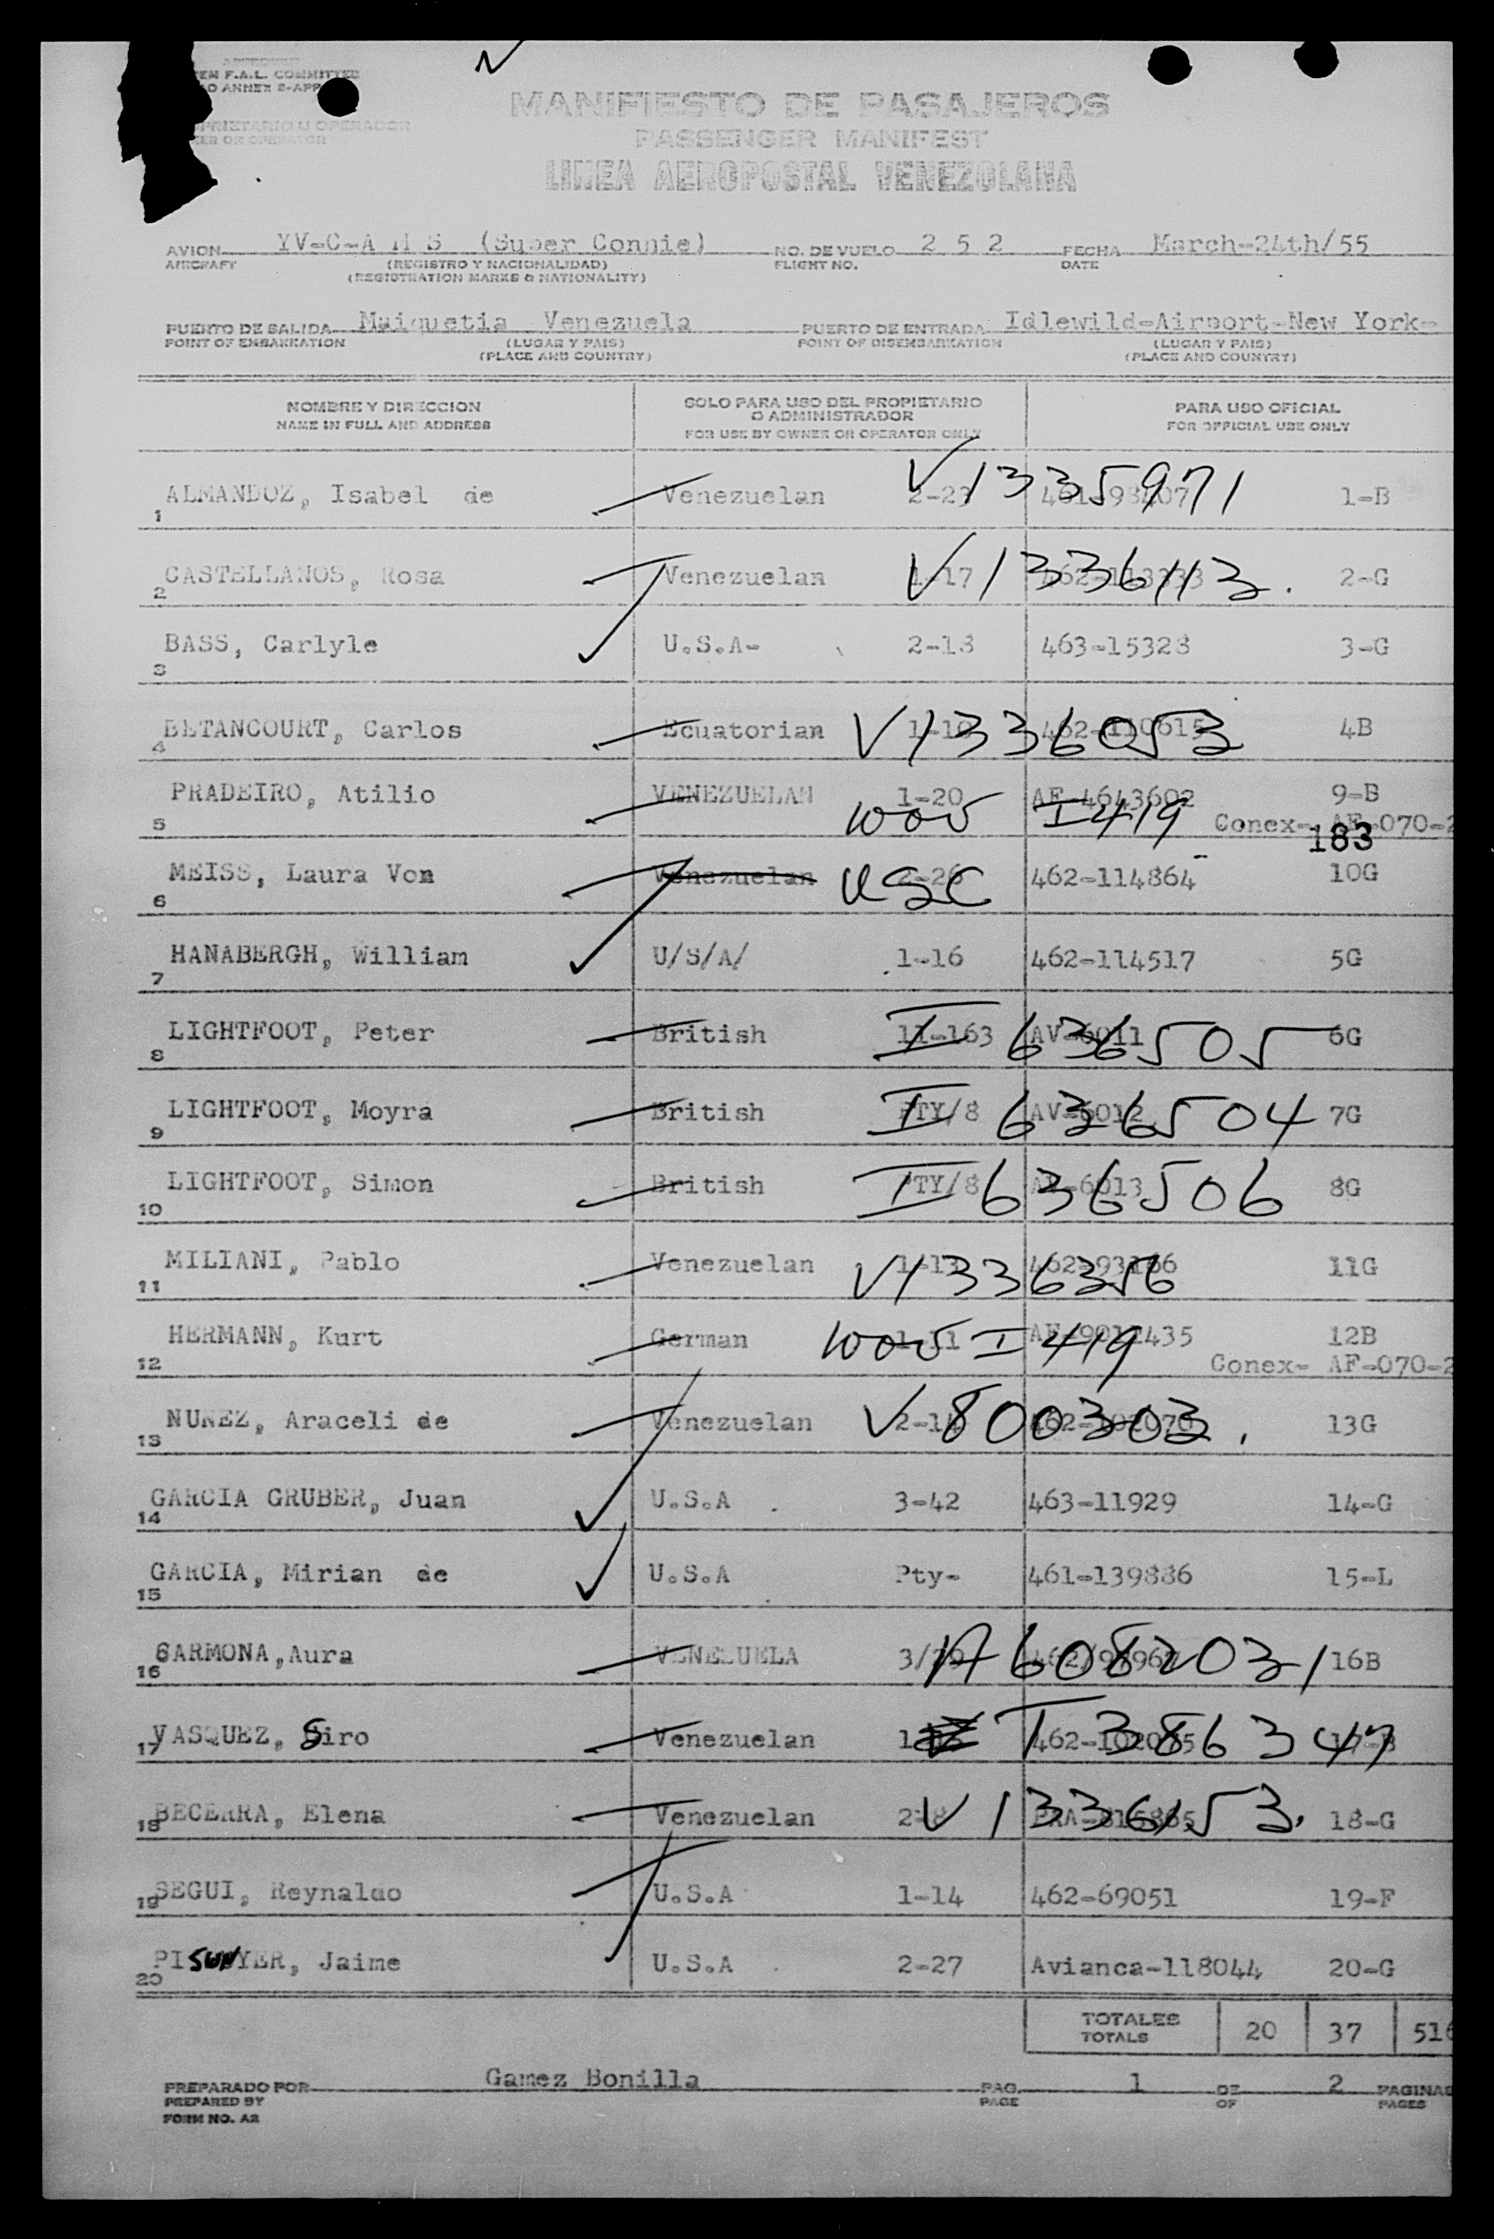 TEM F.A.L. COMMITTEE
MANIFIESTO DE PASAJEROS
PASSENGER MANIFEST
OPERADOR
OR OPERATOR
LINEA AEROPOSTAL VENEZOLANA
AVION YV-C-A (Super Connie) NO. DE VUELO 2 5 2 FECHA March-24th/55
AIRCRAFT (REGISTRO Y NACIONALIDAD) FLIGHT NO. DATE
(REGISTRATION MARKS & NATIONALITY)
PUERTO DE SALIDA Maiquetia Venezuela PUERTO DE ENTRADA Idlewild-Airport-New York-
POINT OF EMBARKATION (LUGAR Y PAIS) POINT OF DISEMBARKATION (LUGAR Y PAIS)
(PLACE AND COUNTRY) (PLACE AND COUNTRY)
NOMBRE Y DIRECCION SOLO PARA USO DEL PROPIETARIO PARA USO OFICIAL
NAME IN FULL AND ADDRESS O ADMINISTRADOR FOR OFFICIAL USE ONLY
FOR USE BY OWNER OR OPERATOR ONLY
1 ALMANDOZ, Isabel de Venezuelan 2-23 V1335971 1-B
2 CASTELLANOS, Rosa Venezuelan 1-17 V1336113. 2-G
3 BASS, Carlyle U.S.A- 2-18 463-15328 3-G
4 BETANCOURT, Carlos Ecuatorian V1336053 4B
5 PRADEIRO, Atilio VENEZUELAN 1-20 AF-4643602 9-B
I 419 Conex- AF-070-2
183
6 MEISS, Laura Von Venezuelan 2-26 USC 462-114864 10G
7 HANABERGH, William U/S/A/ 1-16 462-114517 5G
8 LIGHTFOOT, Peter British 11-163 I 636505 AV-6011 6G
9 LIGHTFOOT, Moyra British PTY/8 I 636504 AV-6012 7G
10 LIGHTFOOT, Simon British PTY/8 I 636506 AV-6013 8G
11 MILIANI, Pablo Venezuelan 1-13 V1336356 11G
12 HERMANN, Kurt German I 419 12B
Conex- AF-070-2
13 NUNEZ, Araceli de Venezuelan V-800303. 13G
14 GARCIA GRUBER, Juan U.S.A 3-42 463-11929 14-G
15 GARCIA, Mirian de U.S.A Pty- 461-139886 15-L
16 CARMONA,Aura VENEZUELA A6082031 16B
17 VASQUEZ, Siro Venezuelan T 3863 47
18 BECERRA, Elena Venezuelan V1336153. 18-G
19 SEGUI, Reynaldo U.S.A 1-14 462-69051 19-F
20 PI SUNYER, Jaime U.S.A 2-27 Avianca-118044 20-G
TOTALES 20 37 516
TOTALS
PREPARADO POR Gamez Bonilla PAG. 1 DE 2 PAGINAS
PREPARED BY PAGE OF PAGES
FORM NO. A2